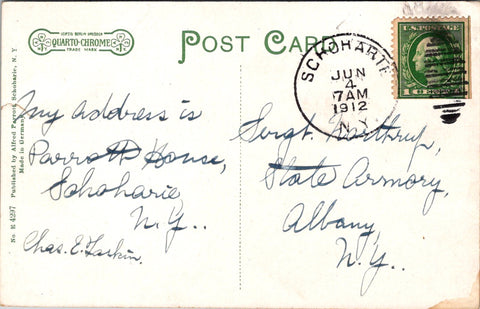 QUARTO-CHROME
TRADE MARK
POST CARD
SCHOHARIE
JUN
4
7AM
1912
N.Y.
U.S. POSTAGE
No E 4297 Published by Alfred Parrott, Schoharie, N. Y.
Made in Germany
My address is
Parrott House,
Schoharie,
N.Y..
Chas. E. Larkin.
Sergt. Northrup,
State Armory,
Albany,
N.Y..